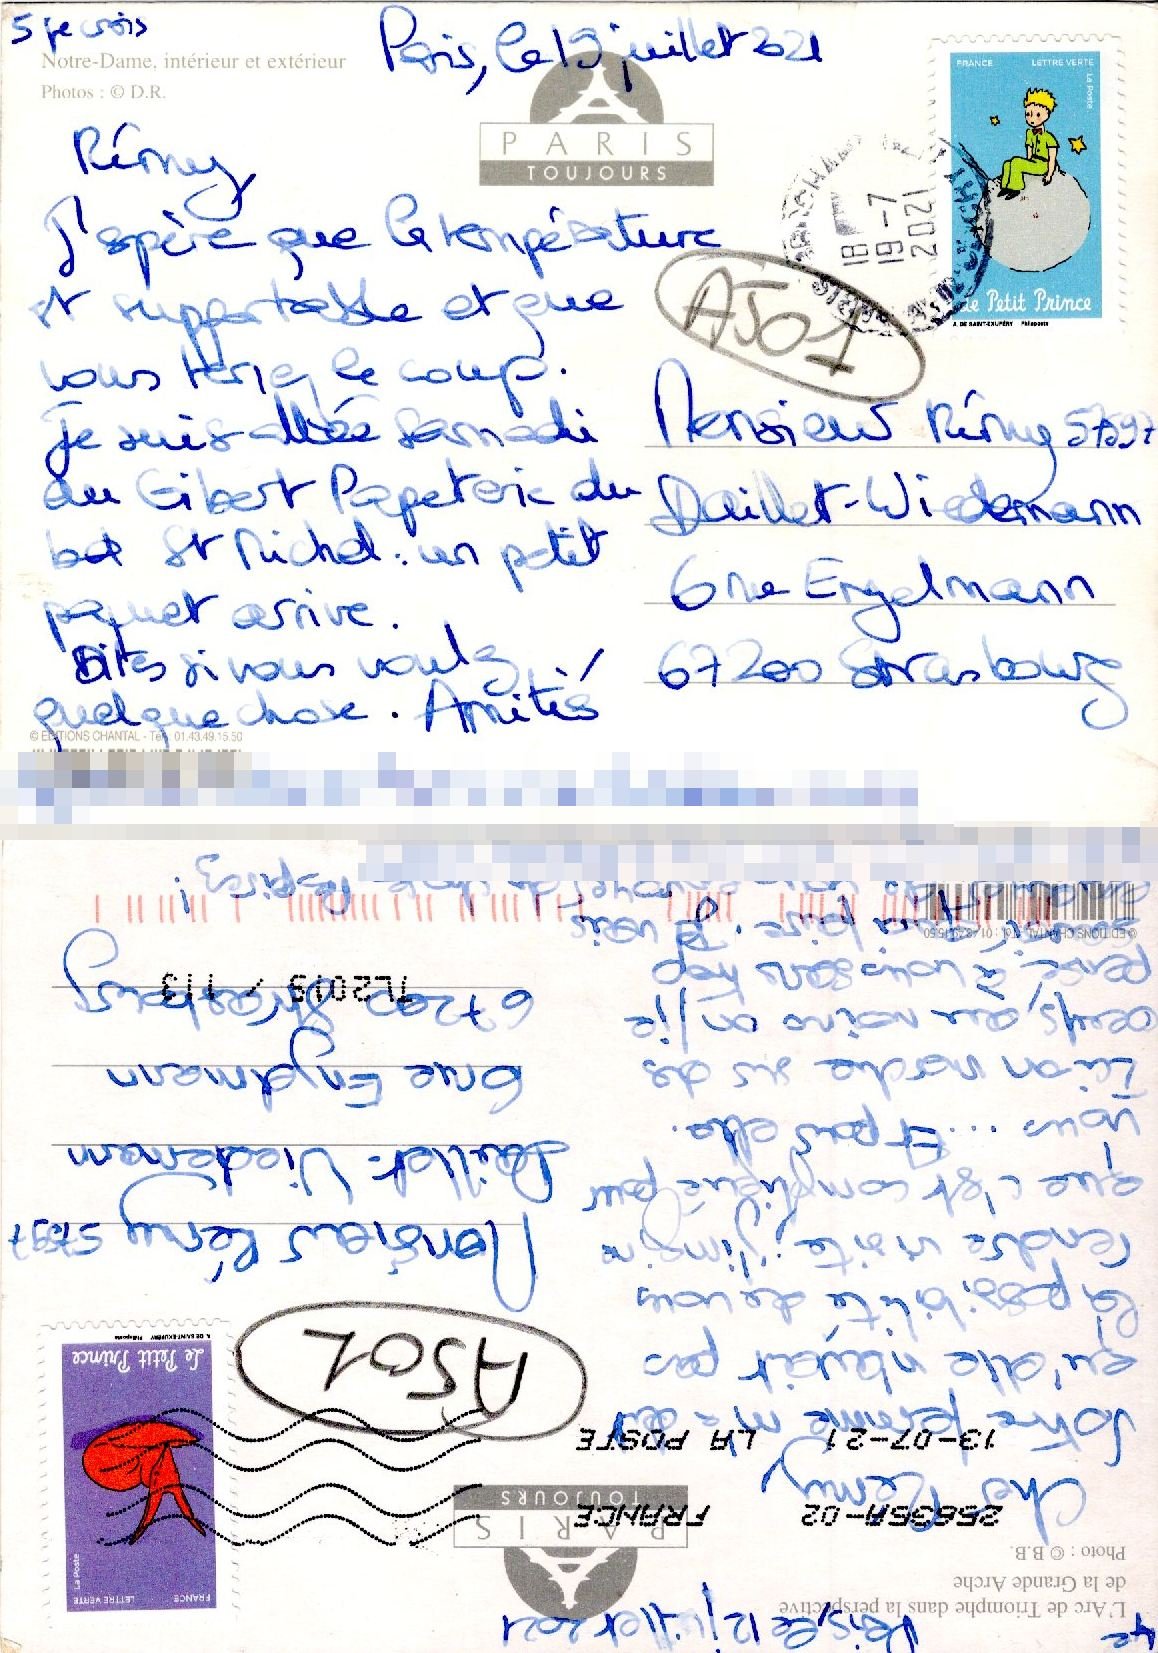 5 je crois
Notre-Dame, intérieur et extérieur
Photos : © D.R.
Paris, le 19 juillet 2021
PARIS
TOUJOURS
FRANCE LETTRE VERTE
La Poste
Le Petit Prince
A. DE SAINT-EXUPÉRY Philaposte
18
19-7
2021
A501
Rémy
J'espère que la température
est supportable et que
vous tenez le coup.
Je suis allée samedi
au Gibert Papeterie du
bd St Michel : un petit
paquet arrive.
Dites si vous voulez
quelque chose. Amitiés
Monsieur Rémy 57597
Daillet-Wiedemann
6 rue Engelmann
67200 Strasbourg
© EDITIONS CHANTAL - Tél. 01.43.49.15.50
4e
Paris, le 12 juillet 2021
L'Arc de Triomphe dans la perspective
de la Grande Arche
Photo : © B.B.
PARIS
TOUJOURS
FRANCE LETTRE VERTE
La Poste
Le Petit Prince
A. DE SAINT-EXUPÉRY Philaposte
25836A-02 FRANCE
13-07-21 LA POSTE
A501
Cher Rémy
Votre femme m'a dit
qu'elle n'avait pas
la possibilité de vous
rendre visite, j'imagine
que c'est compliqué pour
vous ... Et pour elle.
Ici on marche sur des
œufs, au moins on
pense à vous sans trop
Monsieur Rémy 57597
Daillet-Wiedemann
6 rue Engelmann
67200 Strasbourg
TL2019 / 113
© EDITIONS CHANTAL - Tél. : 01.43.49.15.50